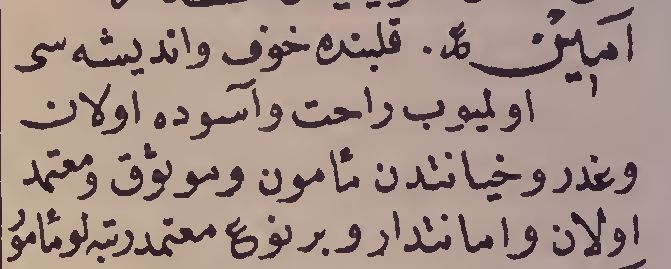 آمین ع. قلبنده خوف واندیشه سی
اولمیوب راحت وآسوده اولان
وغدر وخیانتدن مأمون وموثوق ومعتمد
اولان وامانتدار وبر نوع معتمد رتبه لو مأمو